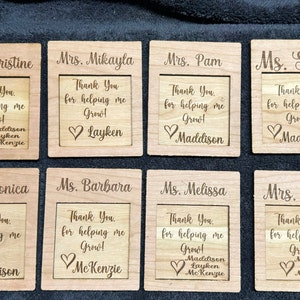 ristine
Thank You,
for helping me
Grow!
Maddison
Layken
McKenzie
Mrs. Mikayla
Thank You,
for helping me
Grow!
Layken
Mrs. Pam
Thank You,
for helping me
Grow!
Maddison
Ms.
Thank
for help
Gro
onica
You,
ing me
w!
ison
Ms. Barbara
Thank You,
for helping me
Grow!
McKenzie
Ms. Melissa
Thank You,
for helping me
Grow!
Maddison
Layken
McKenzie
Mrs.
Thank
for help
Gro